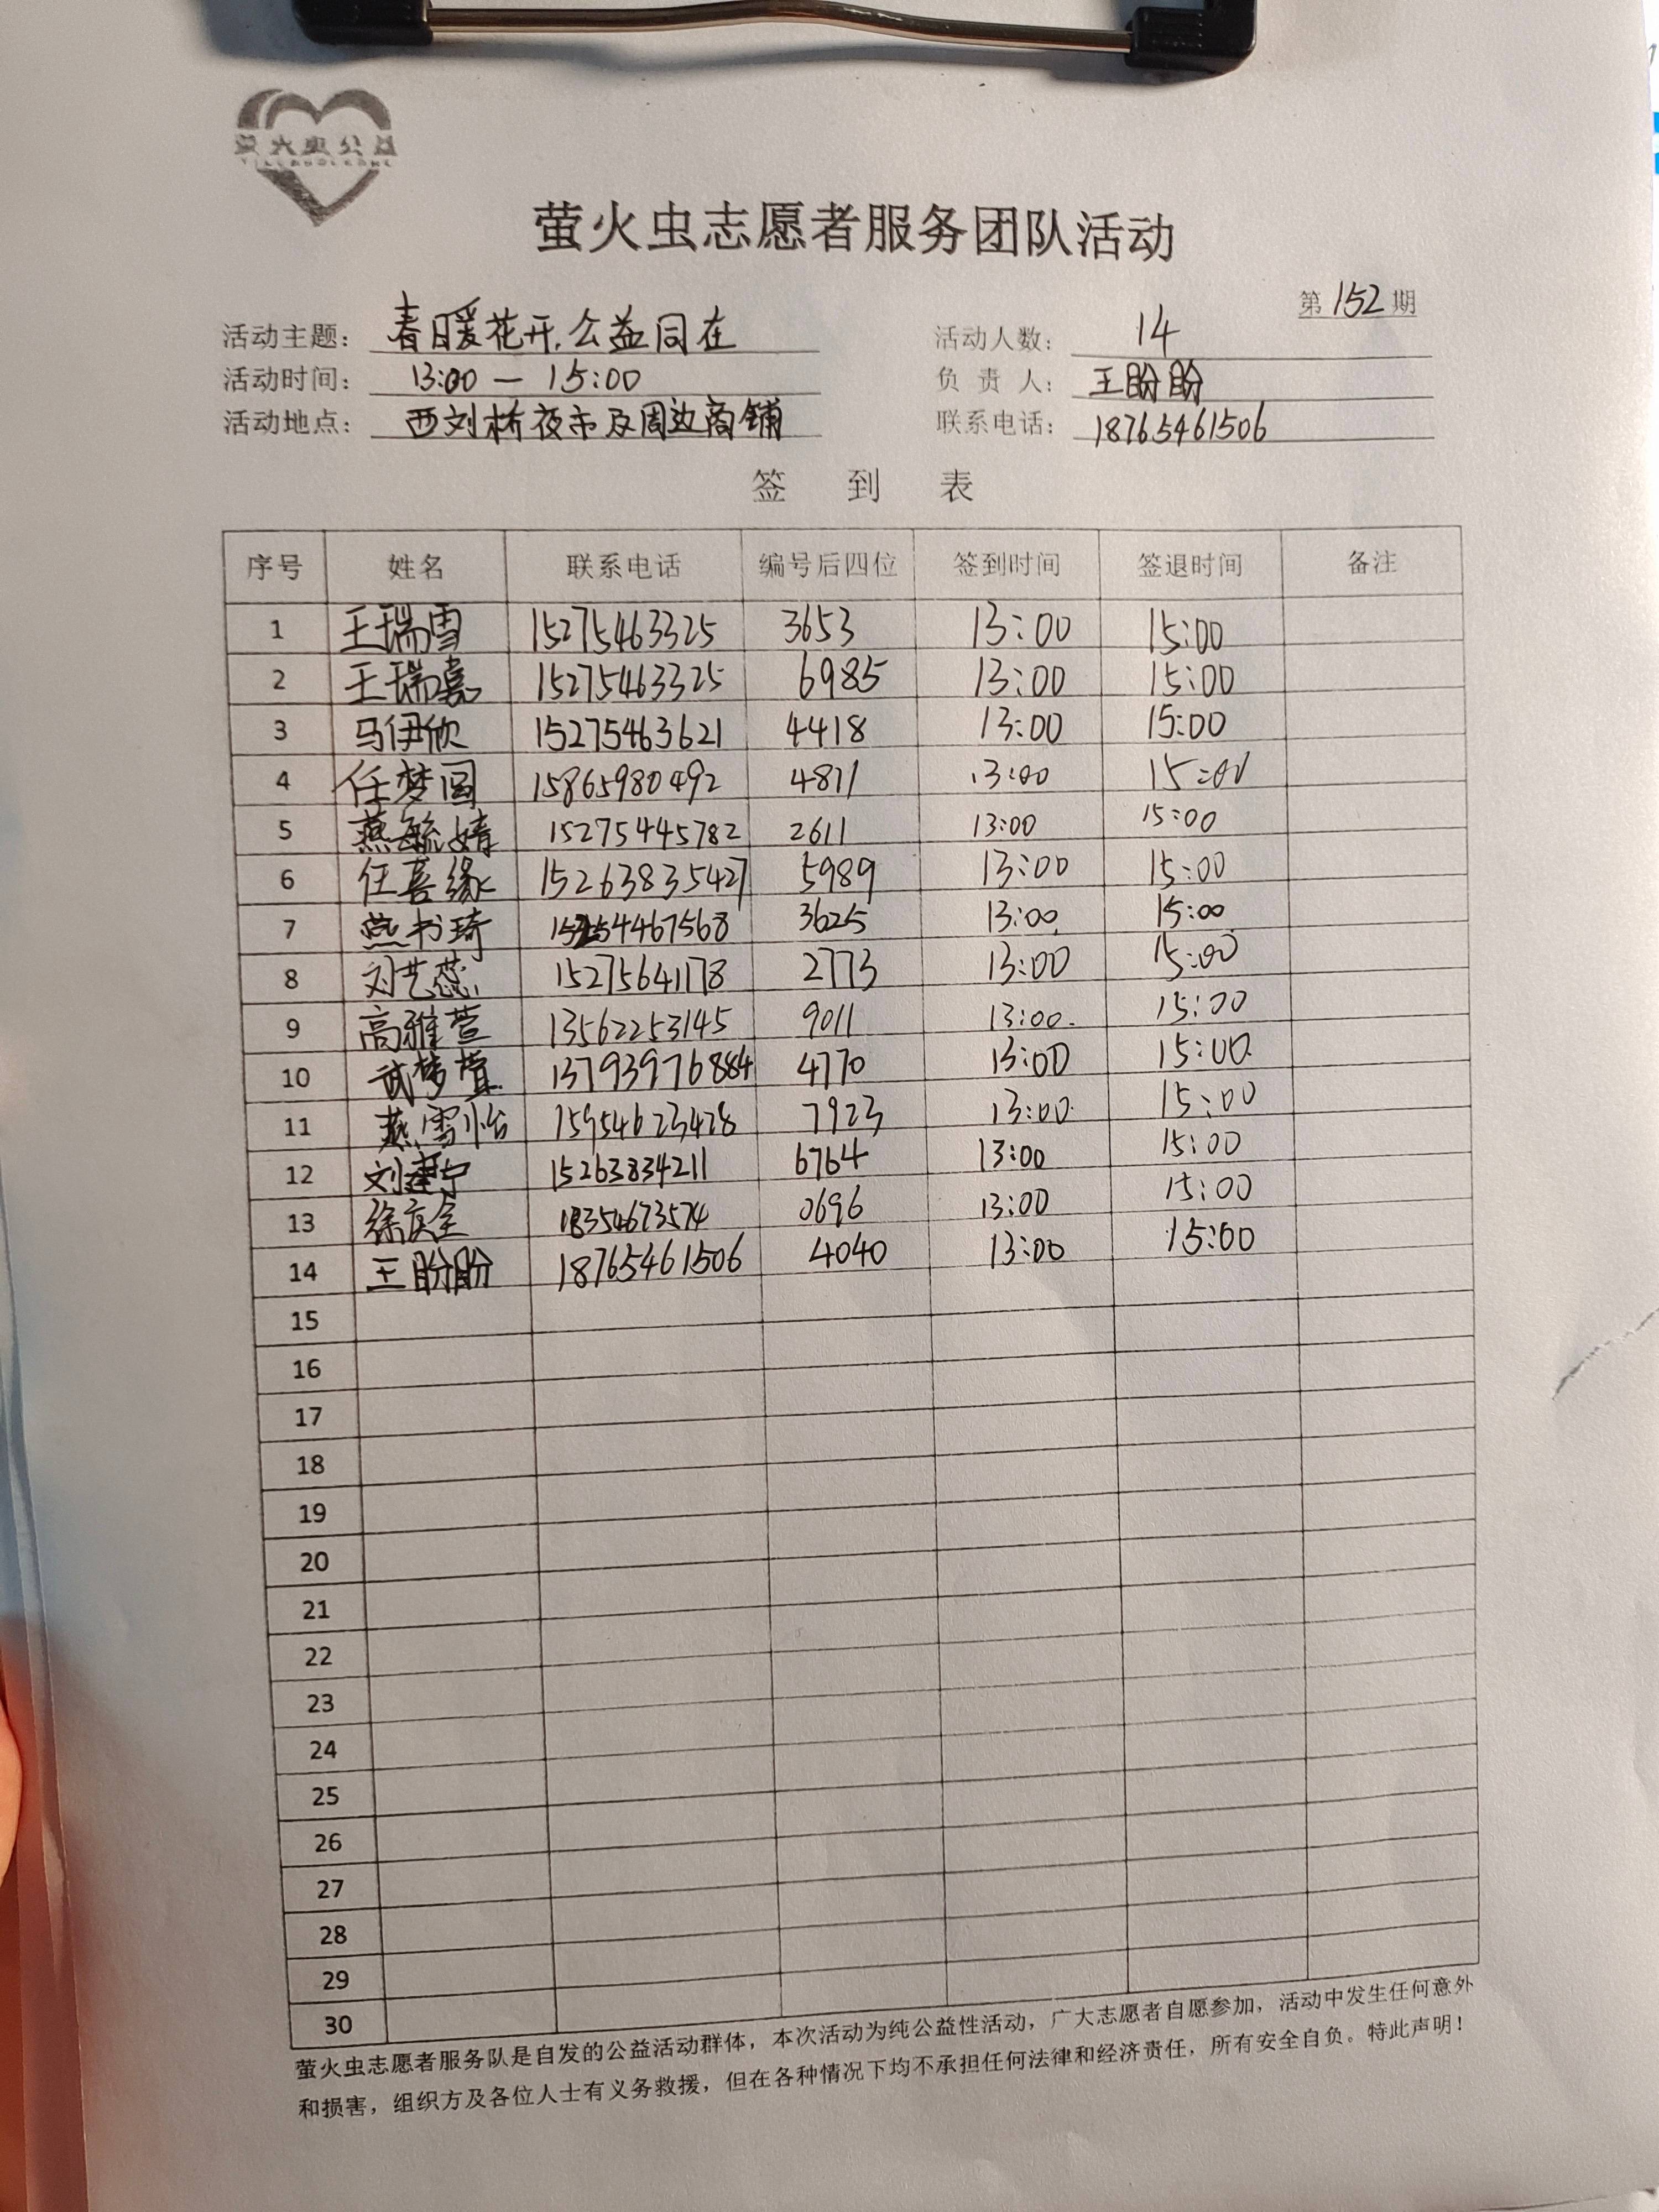 萤火虫公益
萤火虫志愿者服务团队活动
第152期
活动主题: 春日暖花开,公益同在 活动人数: 14
活动时间: 13:00 — 15:00 负责人: 王盼盼
活动地点: 西刘桥夜市及周边商铺 联系电话: 18765461506
签到表
序号 姓名 联系电话 编号后四位 签到时间 签退时间 备注
1 王瑞雪 15275463325 3653 13:00 15:00
2 王瑞嘉 15275463325 6985 13:00 15:00
3 马伊欣 15275463621 4418 13:00 15:00
4 任梦圆 15865980492 4811 13:00 15:00
5 燕毓婧 15275445782 2611 13:00 15:00
6 任喜缘 15263835427 5989 13:00 15:00
7 燕书琦 3625 13:00 15:00
8 刘艺蕊 15275641178 2773 13:00 15:00
9 高雅萱 13562253145 9011 13:00 15:00
10 武梦萱 13793976884 4770 13:00 15:00
11 燕雪怡 15954623428 7923 13:00 15:00
12 刘建宁 15263834211 6764 13:00 15:00
13 徐庆全 18354673574 0696 13:00 15:00
14 王盼盼 18765461506 4040 13:00 15:00
15
16
17
18
19
20
21
22
23
24
25
26
27
28
29
30
萤火虫志愿者服务队是自发的公益活动群体，本次活动为纯公益性活动，广大志愿者自愿参加，活动中发生任何意外
和损害，组织方及各位人士有义务救援，但在各种情况下均不承担任何法律和经济责任，所有安全自负。特此声明！